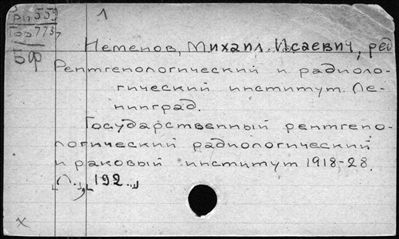 1
Рп559
7737
Неменов, Михаил Исаевич, ред
Рентгенологический и радиоло-
гический институт. Ле-
нинград.
Государственный рентгено-
логический радиологический
и раковый институт 1918-28.
[Л., 192..]
x